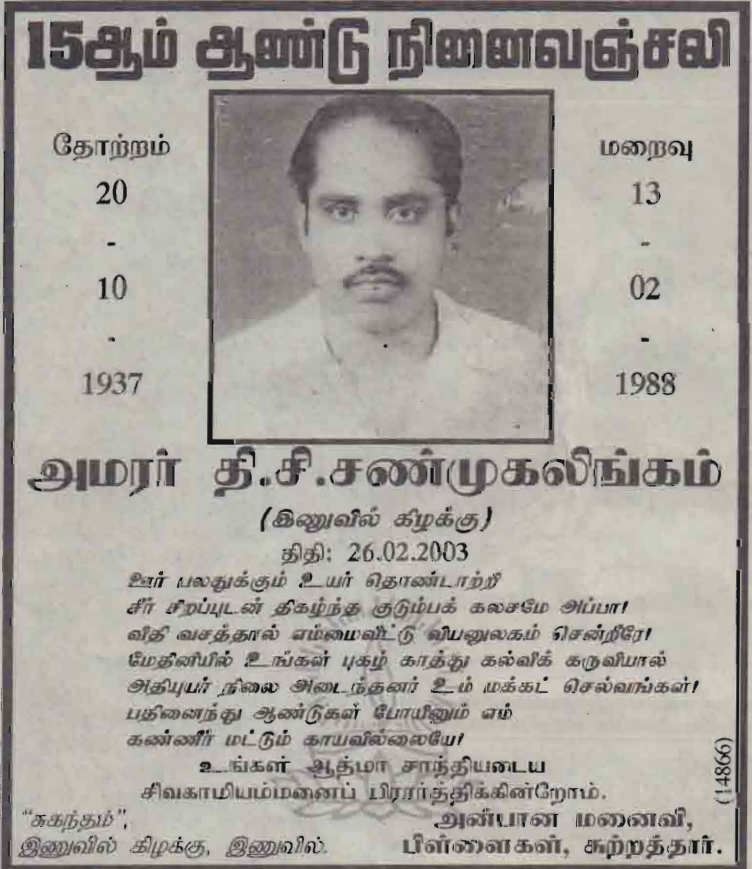 15ஆம் ஆண்டு நினைவஞ்சலி
தோற்றம்
20
-
10
-
1937
மறைவு
13
-
02
-
1988
அமரர் தி.சி.சண்முகலிங்கம்
(இணுவில் கிழக்கு)
திதி: 26.02.2003
ஊர் பலதுக்கும் உயர் தொண்டாற்றி
சீர் சிறப்புடன் திகழ்ந்த குடும்பக் கலசமே அப்பா!
விதி வசத்தால் எம்மைவிட்டு வியனுலகம் சென்றீரே!
மேதினியில் உங்கள் புகழ் காத்து கல்விக் கருவியால்
அதியுயர் நிலை அடைந்தனர் உம் மக்கட் செல்வங்கள்!
பதினைந்து ஆண்டுகள் போயினும் எம்
கண்ணீர் மட்டும் காயவில்லையே!
உங்கள் ஆத்மா சாந்தியடைய
சிவகாமியம்மனைப் பிரார்த்திக்கின்றோம்.
"சுகந்தம்",
இணுவில் கிழக்கு, இணுவில்.
அன்பான மனைவி,
பிள்ளைகள், சுற்றத்தார்.
(14866)